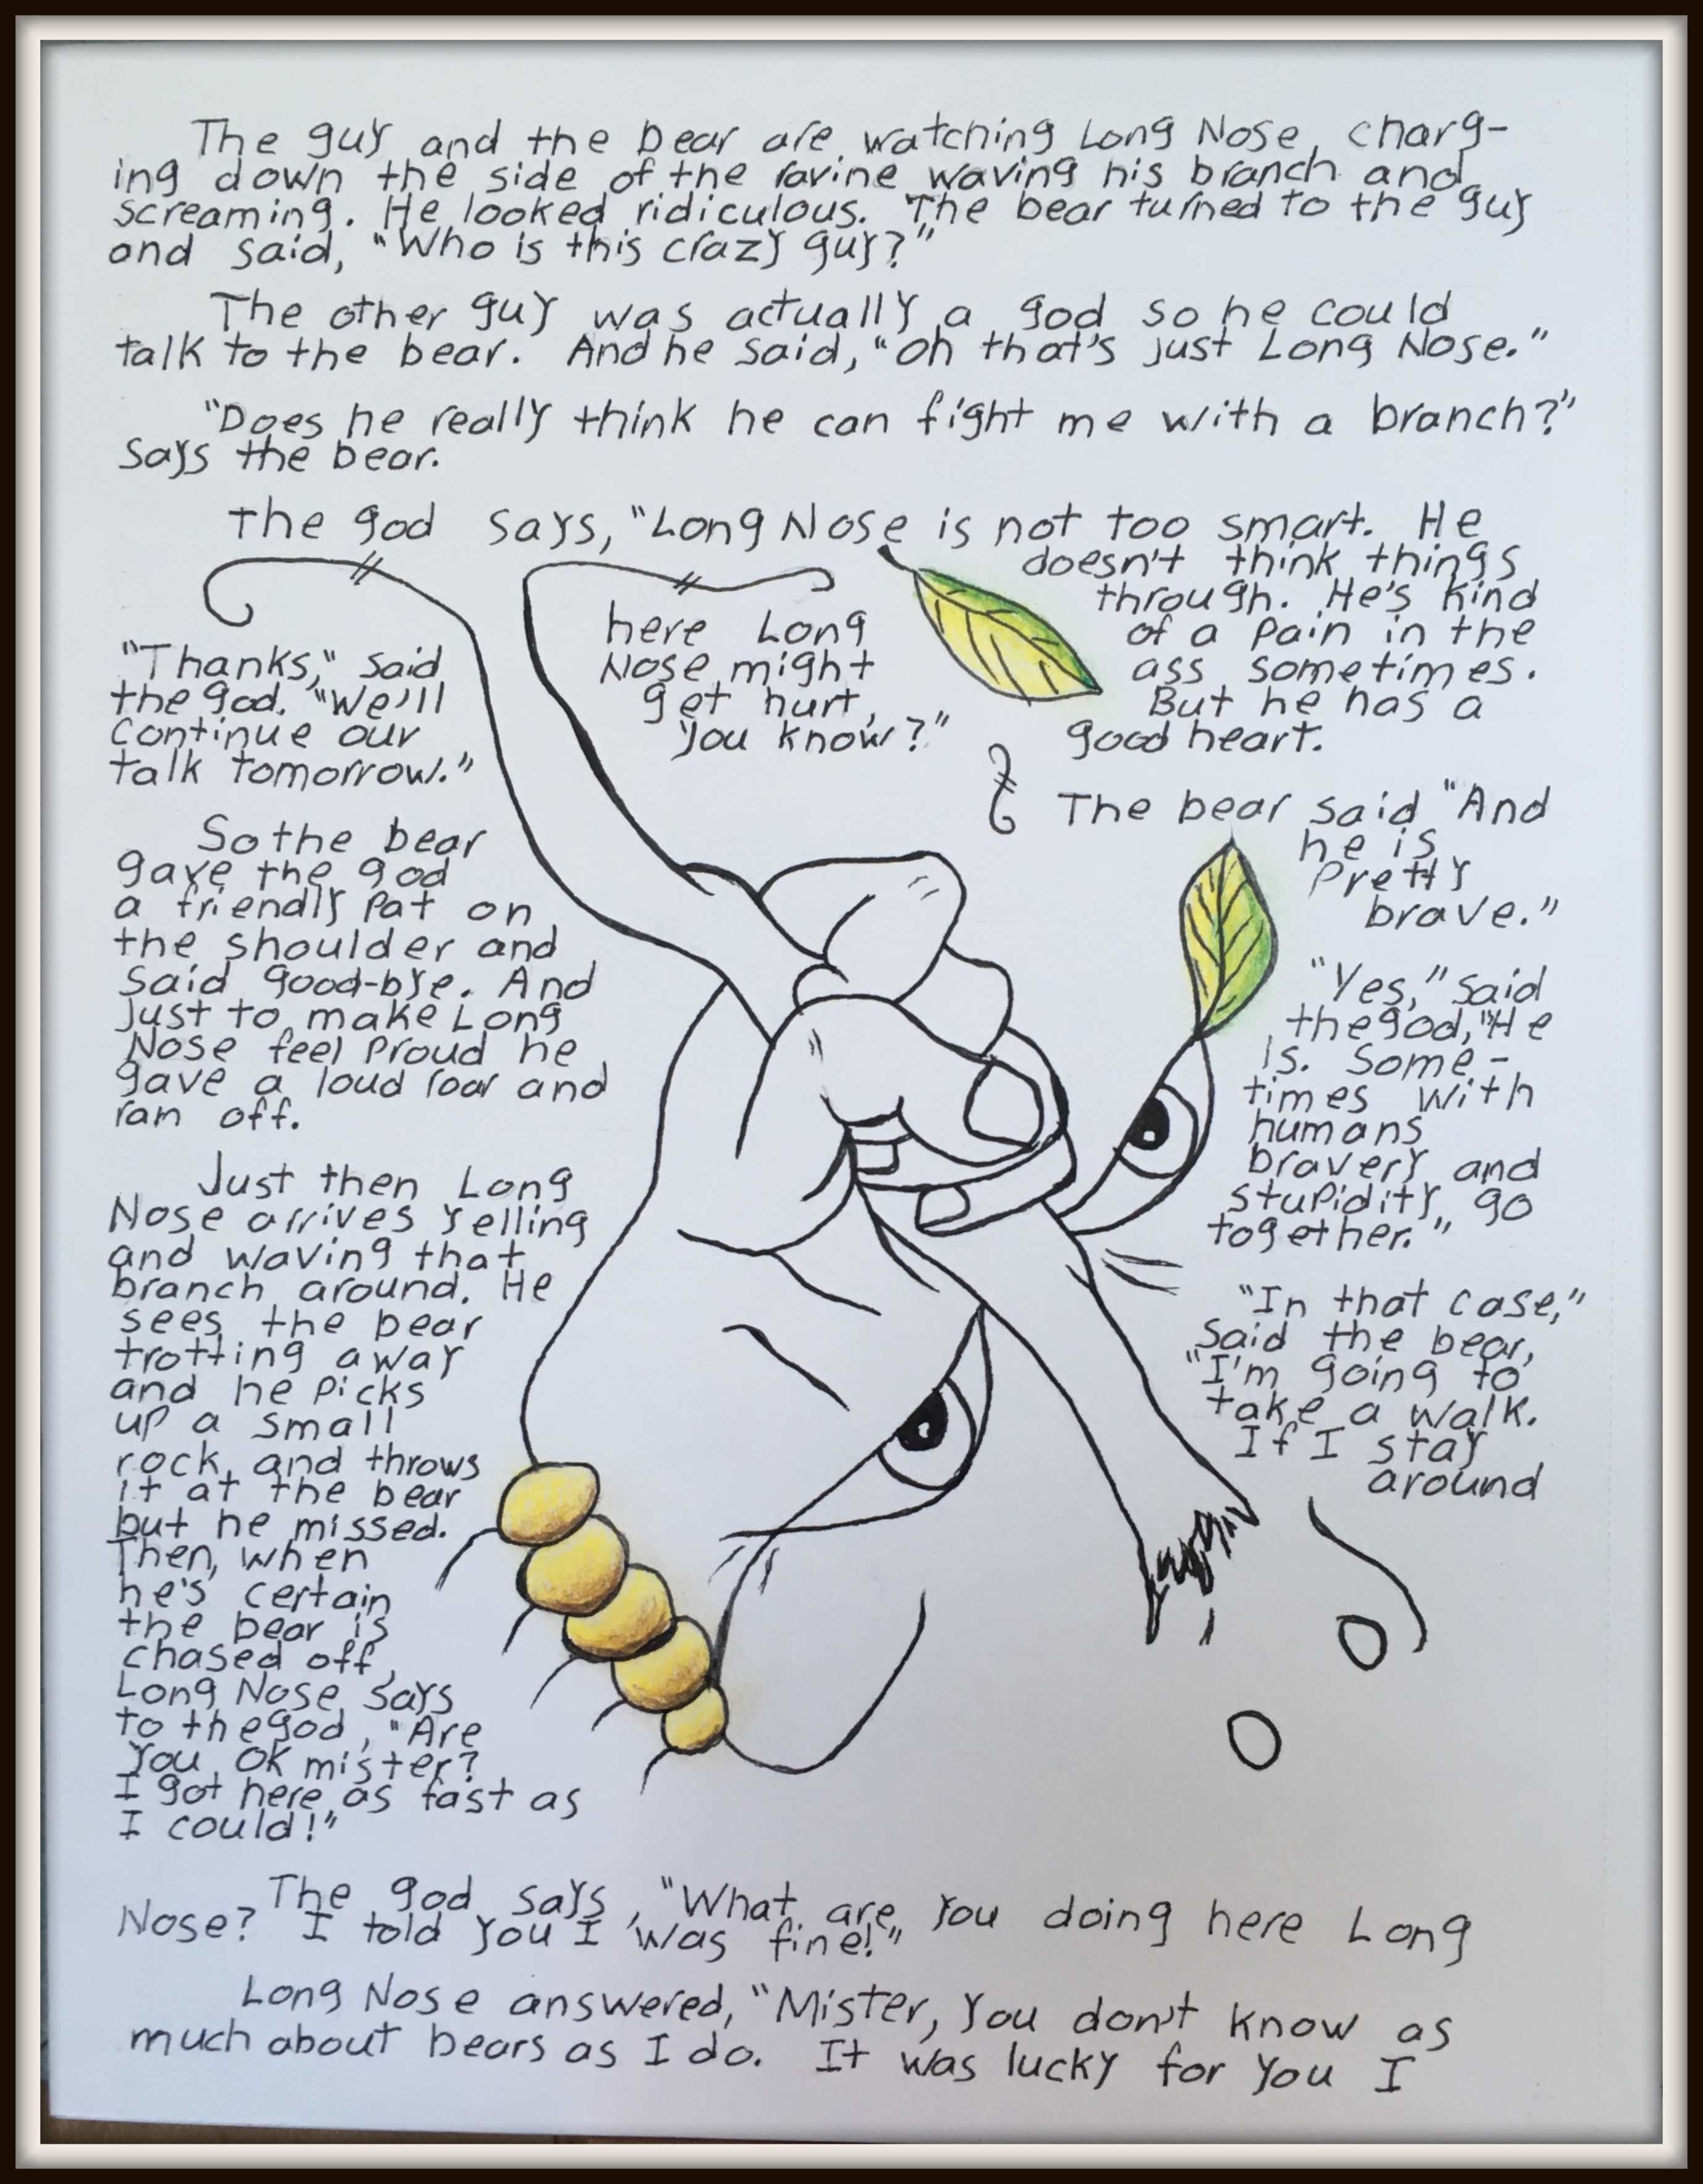 The guy and the bear are watching Long Nose, charg-
ing down the side of the ravine waving his branch and
screaming. He looked ridiculous. The bear turned to the guy
and said, "Who is this crazy guy?"
The other guy was actually a god so he could
talk to the bear. And he said, "Oh that's just Long Nose."
"Does he really think he can fight me with a branch?"
Says the bear.
The god says, "Long Nose is not too smart. He
doesn't think things
through. He's kind
of a pain in the
ass sometimes.
But he has a
good heart.
The bear said "And
he is
pretty
brave."
"Yes," said
the god, "He
is. Some-
times with
humans
bravery and
stupidity go
together."
"In that case,"
said the bear,
"I'm going to
take a walk.
If I stay
around
here Long
Nose might
get hurt,
you know?"
"Thanks," said
the god. "We'll
continue our
talk tomorrow."
So the bear
gave the god
a friendly pat on
the shoulder and
said good-bye. And
just to make Long
Nose feel proud he
gave a loud roar and
ran off.
Just then Long
Nose arrives yelling
and waving that
branch around. He
sees the bear
trotting away
and he picks
up a small
rock and throws
it at the bear
but he missed.
Then, when
he's certain
the bear is
chased off,
Long Nose says
to the god, "Are
you ok mister?
I got here as fast as
I could!"
The god says, "What are you doing here Long
Nose? I told you I was fine!"
Long Nose answered, "Mister, you don't know as
much about bears as I do. It was lucky for you I